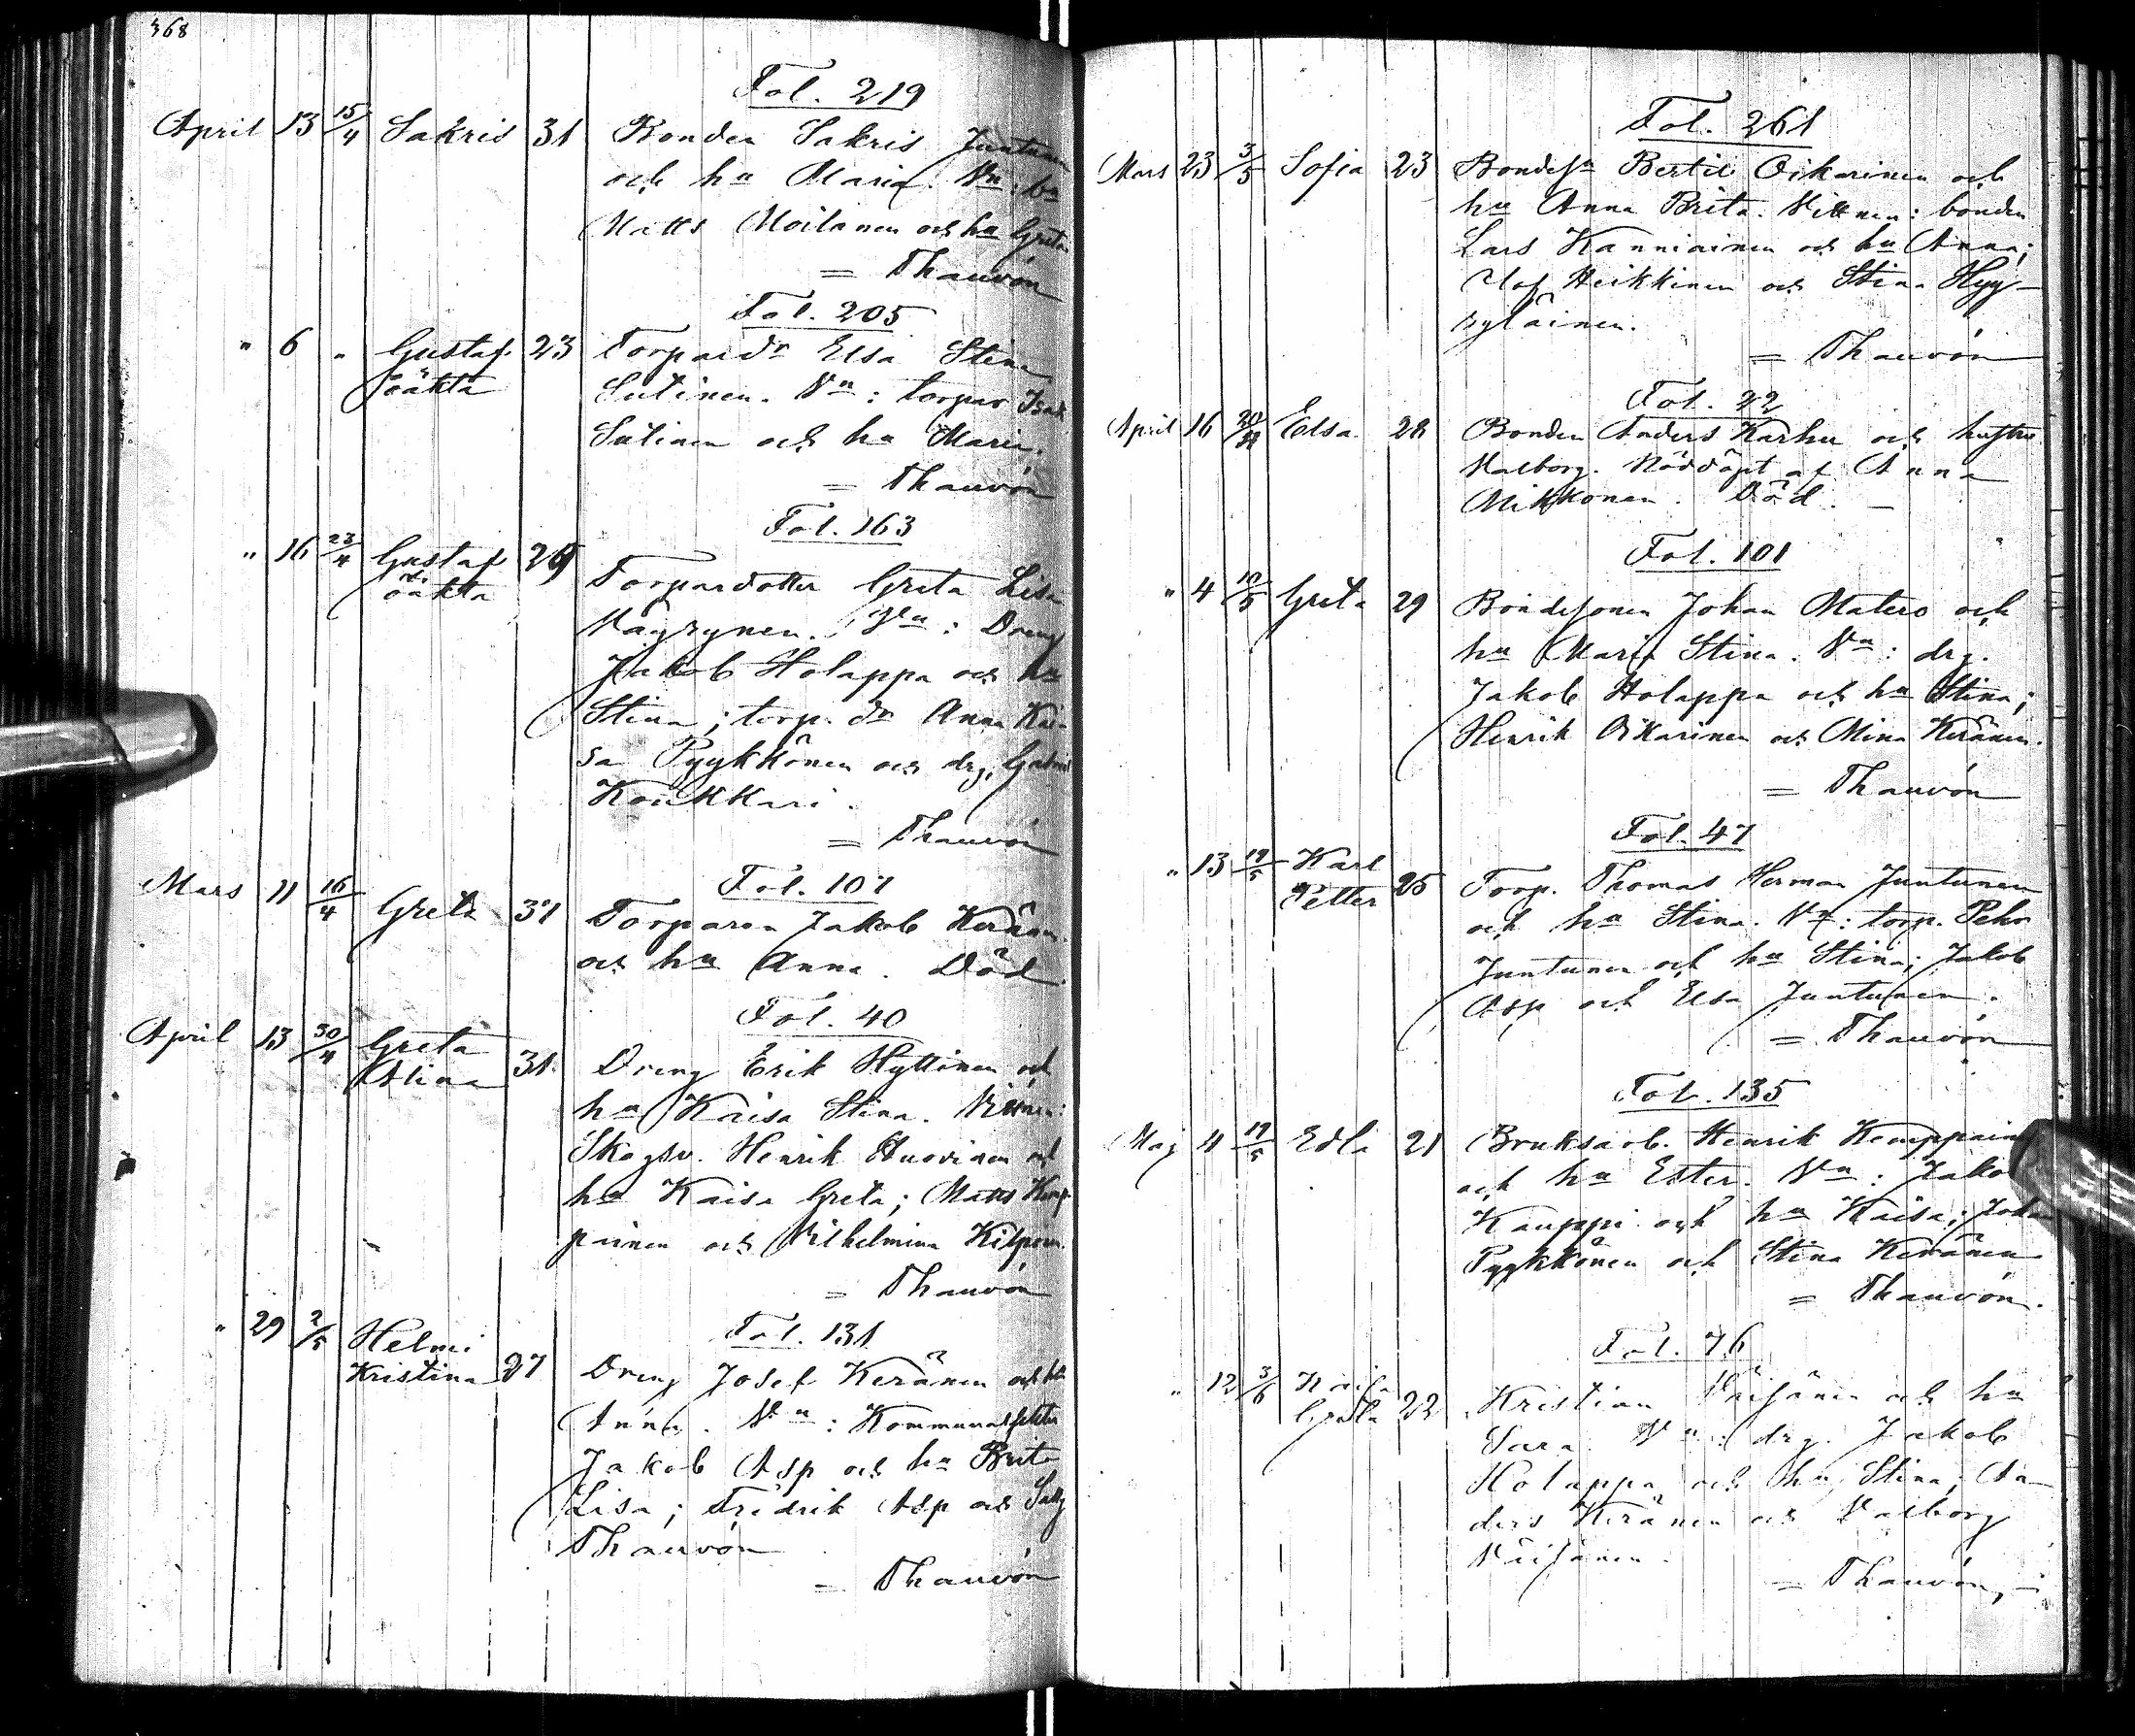 368
Fol. 219
April 13 15/4 Sakris 31 Bonden Sakris Juntunen
och hu Maria. Vn: bn
Matts Moilanen och hu Greta
= Thauvón
Fol. 205
" 6 " Gustaf 23 Torpardr Elsa Stina
oäkta Sutinen. Vn: torpar Isak
Sutinen och hu Maria.
= Thauvón
Fol. 163
" 16 23/4 Gustaf 29 Torpardotter Greta Lisa
oäkta Väyrynen. Vn: Dreng
Jakob Holappa och hu
Stina; torp. dr Anna Kai-
sa Pyykkönen och drg. Gabriel
Koukkari.
= Thauvón
Fol. 107
Mars 11 16/4 Greta 37 Torparen Jakob Keränen
och hu Anna. Död.
Fol. 40
April 13 30/4 Greta
Stina 31 Dreng Erik Hyttinen och
hu Kaisa Stina. Vittnen:
Skogsv. Henrik Huovinen och
hu Kaisa Greta; Matts Kemp-
painen och Vilhelmina Kilponen.
= Thauvón
Fol. 131
" 29 2/5 Helmi
Kristina 27 Dreng Josef Keränen och hu
Anna. Vn:
Jakob Asp och hu Brita
Lisa; Fredrik Asp och Sally
Thauvón
= Thauvón
Fol. 261
Mars 23 3/5 Sofia 23 Bondesn Bertil Oikarinen och
hu Anna Brita. Vittnen: bonden
Lars Kanniainen och hu Anna;
Olof Heikkinen och Stina Hyy-
ryläinen.
= Thauvón
Fol. 22
April 16 20/4 Elsa 28 Bonden Anders Karhu och hustru
Valborg. Nöddöpt af Anna
Mikkonen. Död. —
Fol. 101
" 4 10/5 Greta 29 Bondesonen Johan Matero och
hu Maria Stina. Vn: drg.
Jakob Holappa och hu Stina;
Henrik Oikarinen och Mina Keränen.
= Thauvón
Fol. 47
" 13 19/5 Karl
Petter 25 Torp. Thomas Herman Juntunen
och hu Stina. Vn: torp. Pehr
Juntunen och hu Stina; Jakob
Asp och Elsa Juntunen.
= Thauvón
Fol. 135
Maj 4 19/5 Edla 21 Bruksarb. Henrik Kemppainen
och hu Ester. Vn: Jakob
Kauppi och hu Kaisa; Johan
Pyykkönen och Stina Keränen
= Thauvón.
Fol. 76
" 12 3/6 Kaisa
Greta 22 Kristian Väisänen och hu
Sara. Vn: drg. Jakob
Holappa och hu Stina; An-
ders Keränen och Valborg
Väisänen.
= Thauvón, —